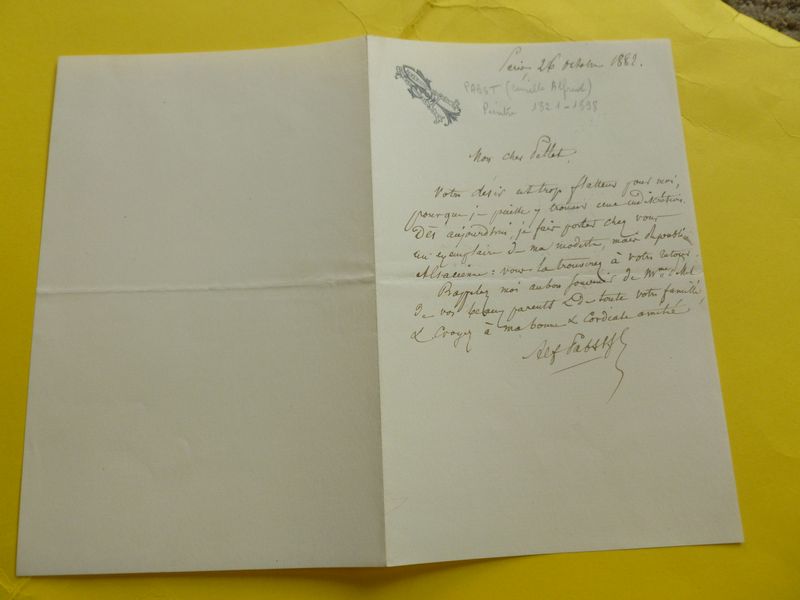 Paris 26 octobre 1882.
PABST (Camille Alfred)
Peintre 1821-1898
Mon cher Pellet,
Votre désir est trop flatteur pour moi,
pour que je puisse y trouver une indiscrétion.
Dès aujourd'hui, je fais porter chez vous
un exemplaire de ma modeste, mais
Alsacienne : vous la trouverez à votre retour.
Rappelez moi au bon souvenir de Mme
de vos beaux parents & de toute votre famille
& croyez à ma bonne & cordiale amitié
Alf Pabst